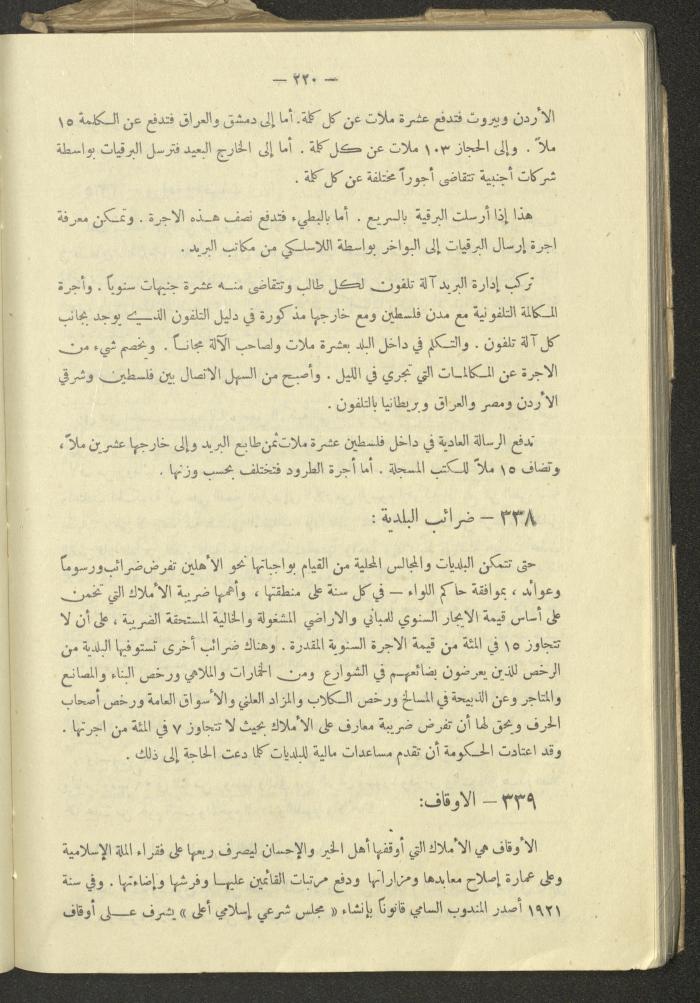 — ٢٢٠ —
الأردن وبيروت فتدفع عشرة ملات عن كل كلمة. أما إلى دمشق والعراق فتدفع عن الكلمة ١٥
ملاً . وإلى الحجاز ١٠٣ ملات عن كل كلمة . أما إلى الخارج البعيد فترسل البرقيات بواسطة
شركات أجنبية تتقاضى أجوراً مختلفة عن كل كلمة .
هذا إذا أرسلت البرقية بالسريع . أما بالبطيء فتدفع نصف هذه الاجرة . وتمكن معرفة
اجرة إرسال البرقيات إلى البواخر بواسطة اللاسلكي من مكاتب البريد .
تركب إدارة البريد آلة تلفون لكل طالب وتتقاضى منه عشرة جنيهات سنوياً . وأجرة
المكالمة التلفونية مع مدن فلسطين ومع خارجها مذكورة في دليل التلفون الذي يوجد بجانب
كل آلة تلفون . والتكلم في داخل البلد بعشرة ملات ولصاحب الآلة مجاناً . ويخصم شيء من
الاجرة عن المكالمات التي تجري في الليل . وأصبح من السهل الاتصال بين فلسطين وشرقي
الأردن ومصر والعراق وبريطانيا بالتلفون .
تدفع الرسالة العادية في داخل فلسطين عشرة ملات ثمن طابع البريد وإلى خارجها عشرين ملاً،
وتضاف ١٥ ملاً للكتب المسجلة . أما أجرة الطرود فتختلف بحسب وزنها .
٣٣٨ — ضرائب البلدية :
حتى تتمكن البلديات والمجالس المحلية من القيام بواجباتها نحو الأهلين تفرض ضرائب ورسوماً
وعوائد ، بموافقة حاكم اللواء — في كل سنة على منطقتها ، وأهمها ضريبة الأملاك التي تخمن
على أساس قيمة الايجار السنوي للمباني والاراضي المشغولة والخالية المستحقة الضريبة ، على أن لا
تتجاوز ١٥ في المئة من قيمة الاجرة السنوية المقدرة . وهناك ضرائب أخرى تستوفيها البلدية من
الرخص للذين يعرضون بضائعهم في الشوارع ومن الخمارات والملاهي ورخص البناء والمصانع
والمتاجر وعن الذبيحة في المسالخ ورخص الكلاب والمزاد العلني والأسواق العامة ورخص أصحاب
الحرف ويحق لها أن تفرض ضريبة معارف على الأملاك بحيث لا تتجاوز ٧ في المئة من اجرتها .
وقد اعتادت الحكومة أن تقدم مساعدات مالية للبلديات كلما دعت الحاجة إلى ذلك .
٣٣٩ — الاوقاف:
الأوقاف هي الأملاك التي أوقفها أهل الخير والإحسان ليصرف ريعها على فقراء الملة الإسلامية
وعلى عمارة إصلاح معابدها ومزاراتها ودفع مرتبات القائمين عليها وفرشها وإضاءتها . وفي سنة
١٩٢١ أصدر المندوب السامي قانوناً بإنشاء « مجلس شرعي إسلامي أعلى » يشرف على أوقاف